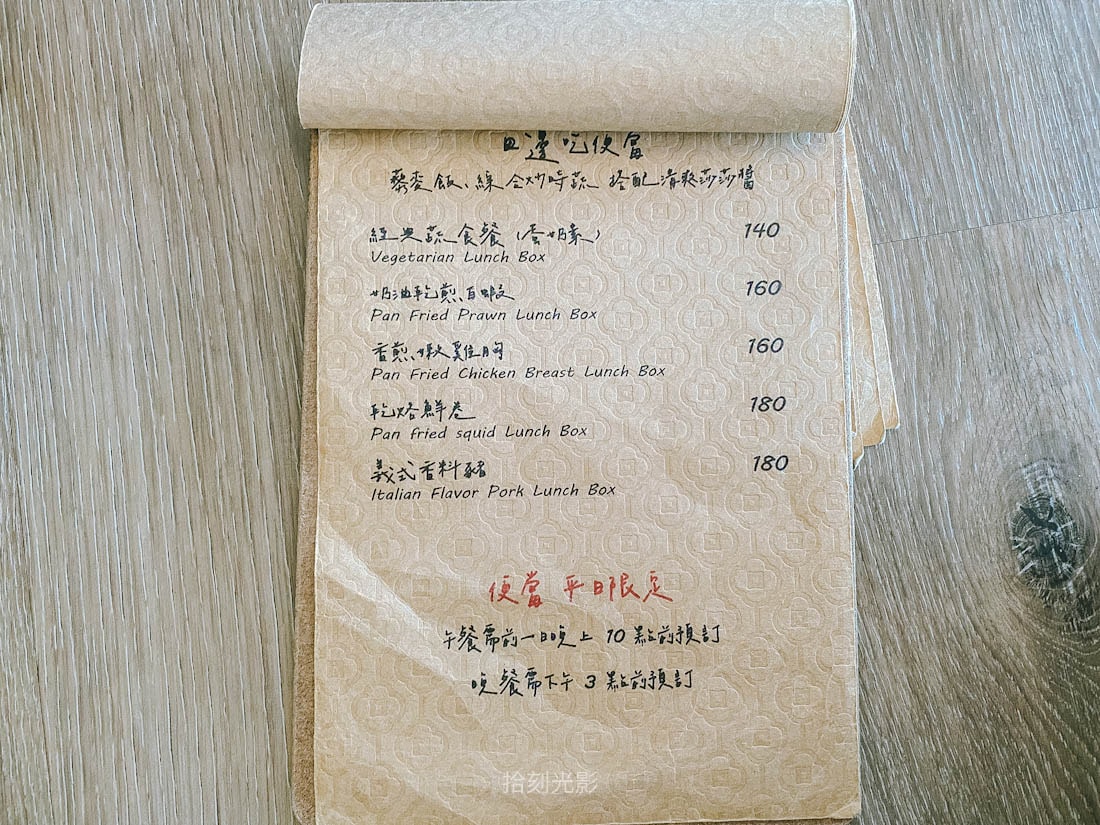 田邊吃便當
藜麥飯、綜合炒時蔬 搭配清爽莎莎醬
經典蔬食餐（蛋奶素） 140
Vegetarian Lunch Box
奶油乾煎白蝦 160
Pan Fried Prawn Lunch Box
香煎嫩雞胸 160
Pan Fried Chicken Breast Lunch Box
乾烙鮮卷 180
Pan fried squid Lunch Box
義式香料豬 180
Italian Flavor Pork Lunch Box
便當 平日限定
午餐需前一日晚上 10 點前預訂
晚餐需下午 3 點前預訂
拾刻光影